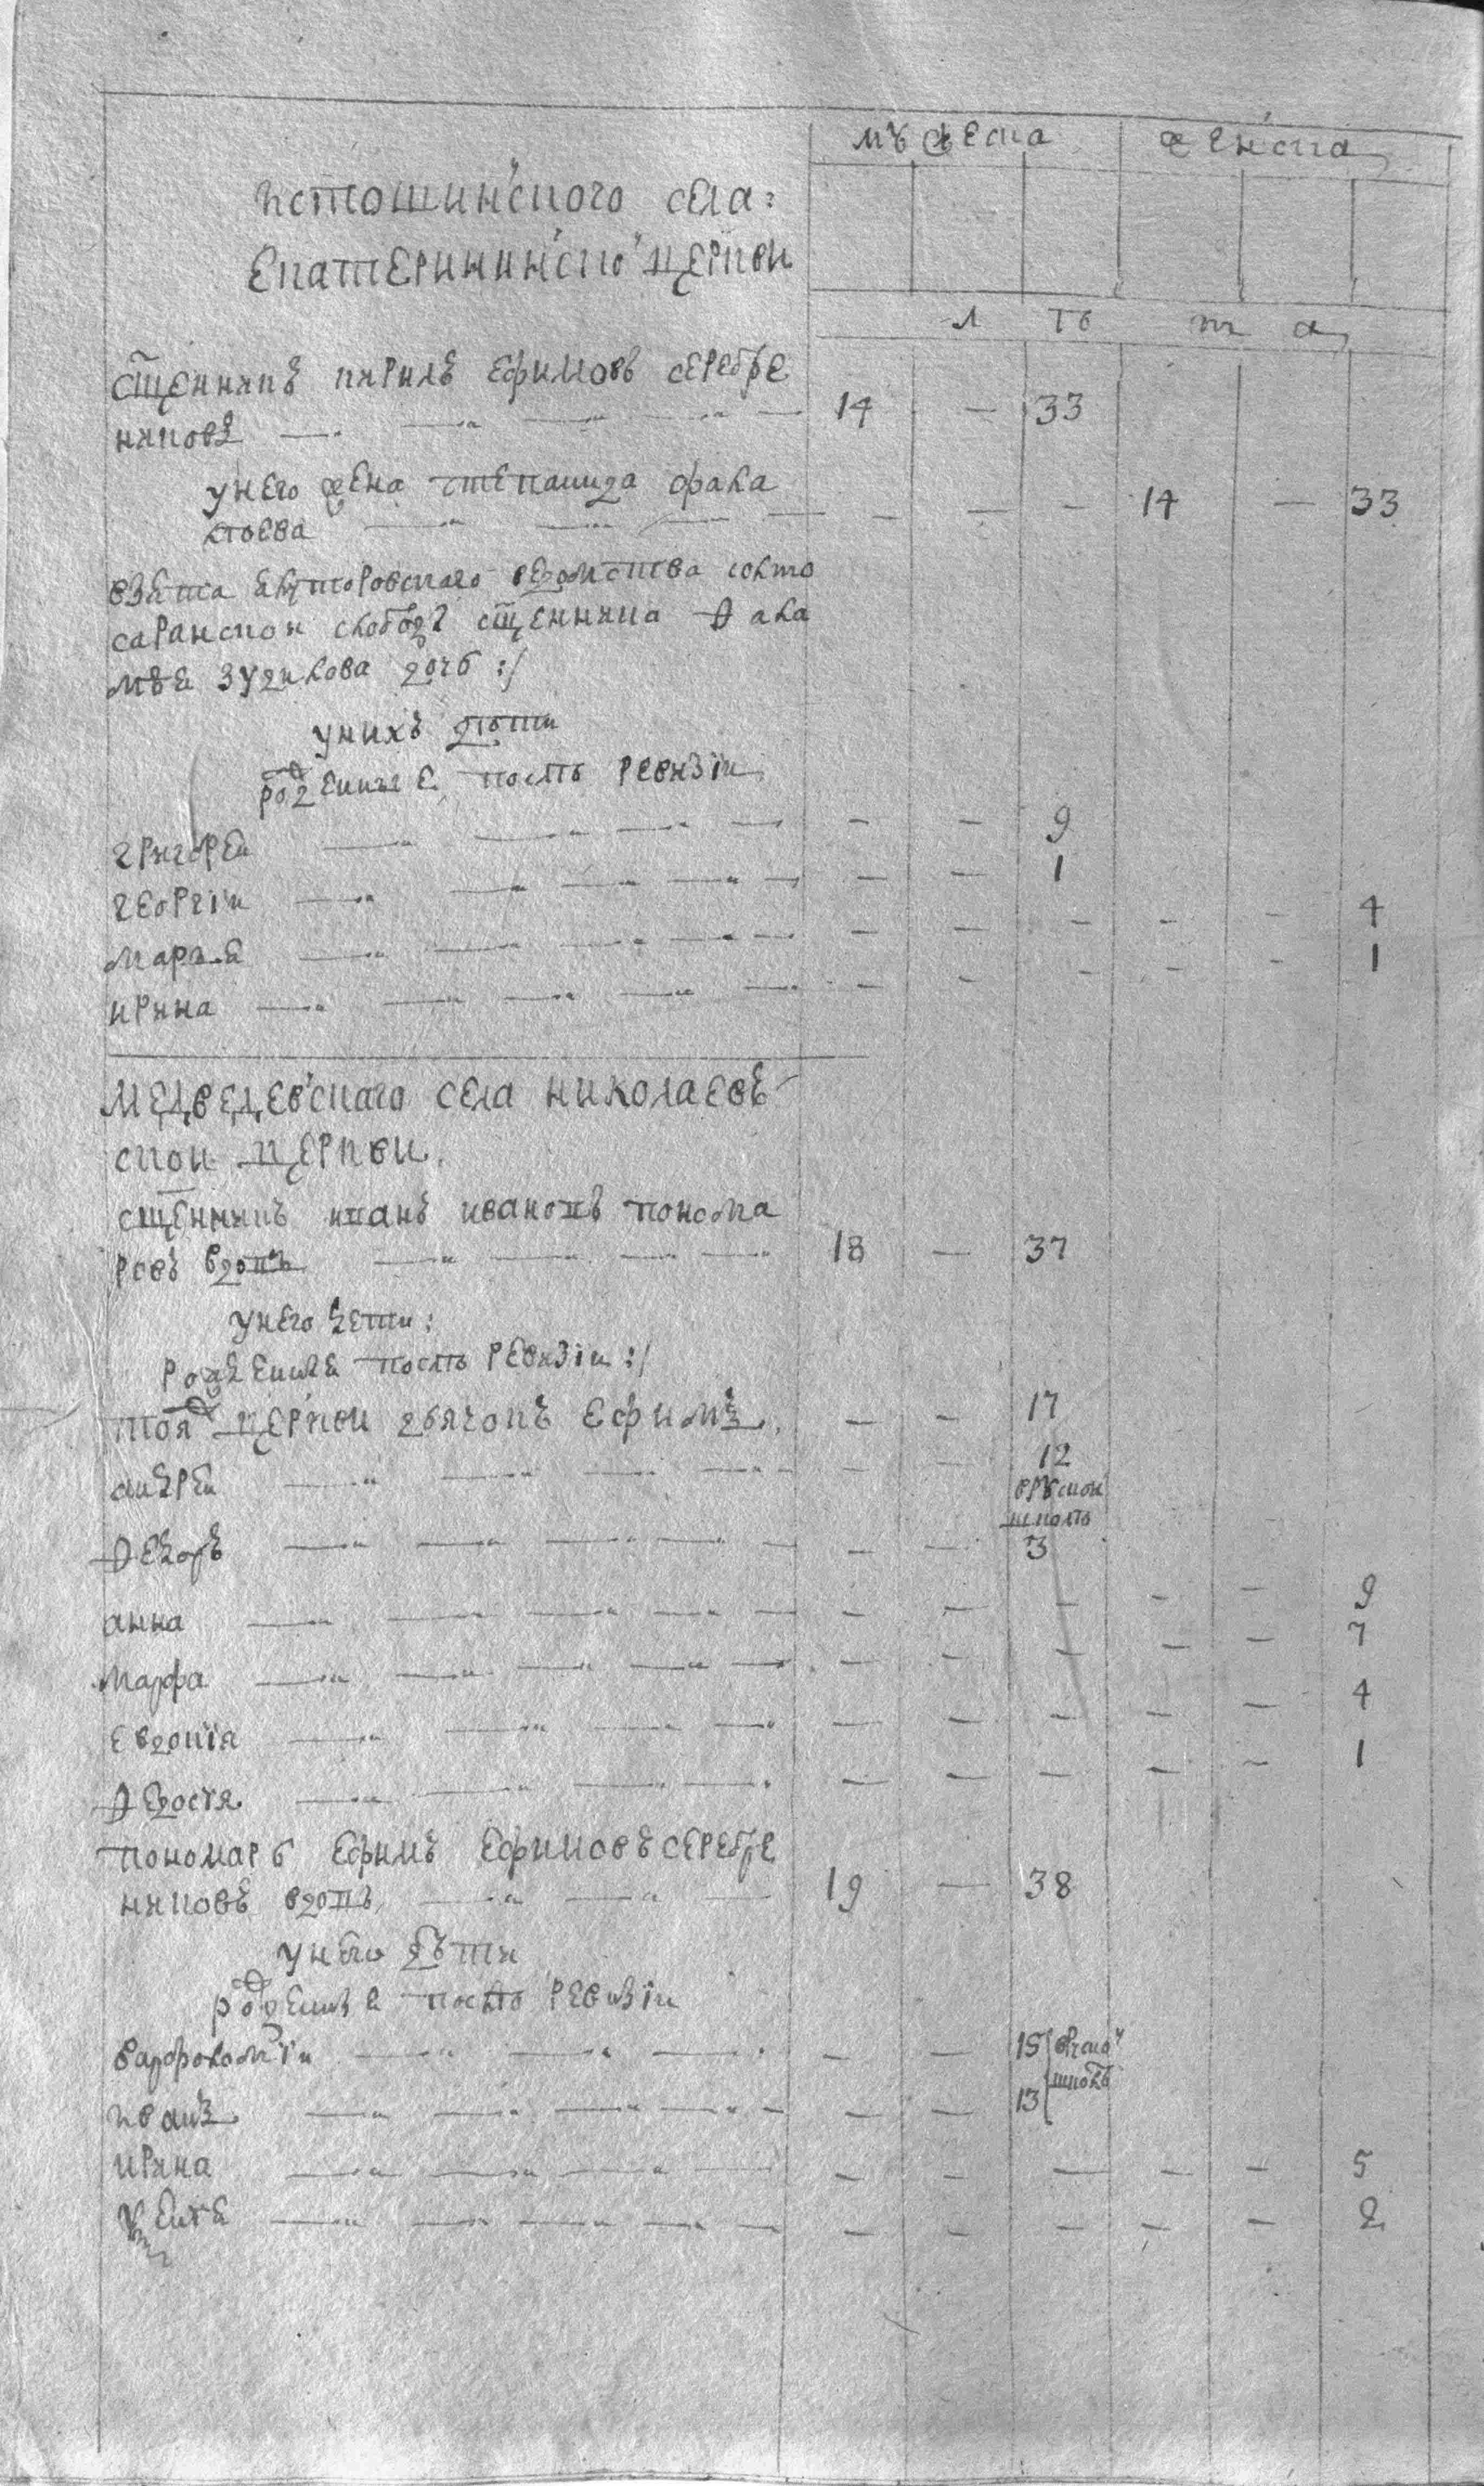 мꙋжеска женска
истошинского села:
Екатерининско церкви
лѣ та
сщенникъ кирилъ ефимовъ серебре
никовъ 14 — 33
у него жена степанида фала
лѣева — — — 14 — 33
взята ялуторовского ведомства
саранской слободы сщенника Ѳала
мѣя зудилова дочь :/
у нихъ дѣти
рожденные послѣ ревизiи
григореи — — 9
георгiи — — 1
марья — — — — — 4
ирина — — — — — 1
Медведевского села николаевъ
скои церкви.
сщенникъ иванъ ивановъ понома
ревъ вдовъ 18 — 37
у него дети:
рожденные послѣ ревизiи :/
тоя церкви дьячокъ ефимъ — — 17
андреи — — 12
врꙋскои
школѣ
Ѳедоръ — — 3
анна — — — — — 9
марфа — — — — — 7
евдокiя — — — — — 4
Ѳедосья — — — — — 1
пономарь ефимъ ефимовъ серебре
никовъ вдовъ 19 — 38
у него дѣти
рожденные послѣ ревизiи
варфоломѣи — — 15
школѣ
иванъ — — 13
ирина — — — — — 5
— — — — — 2